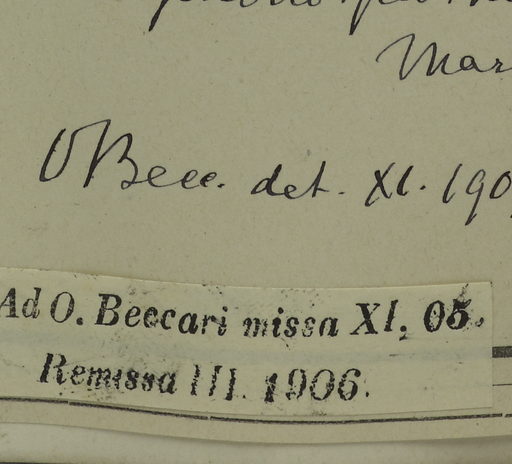 Mar
O Becc. det. XI. 190
Ad O. Beccari missa XI, 05.
Remissa III. 1906.